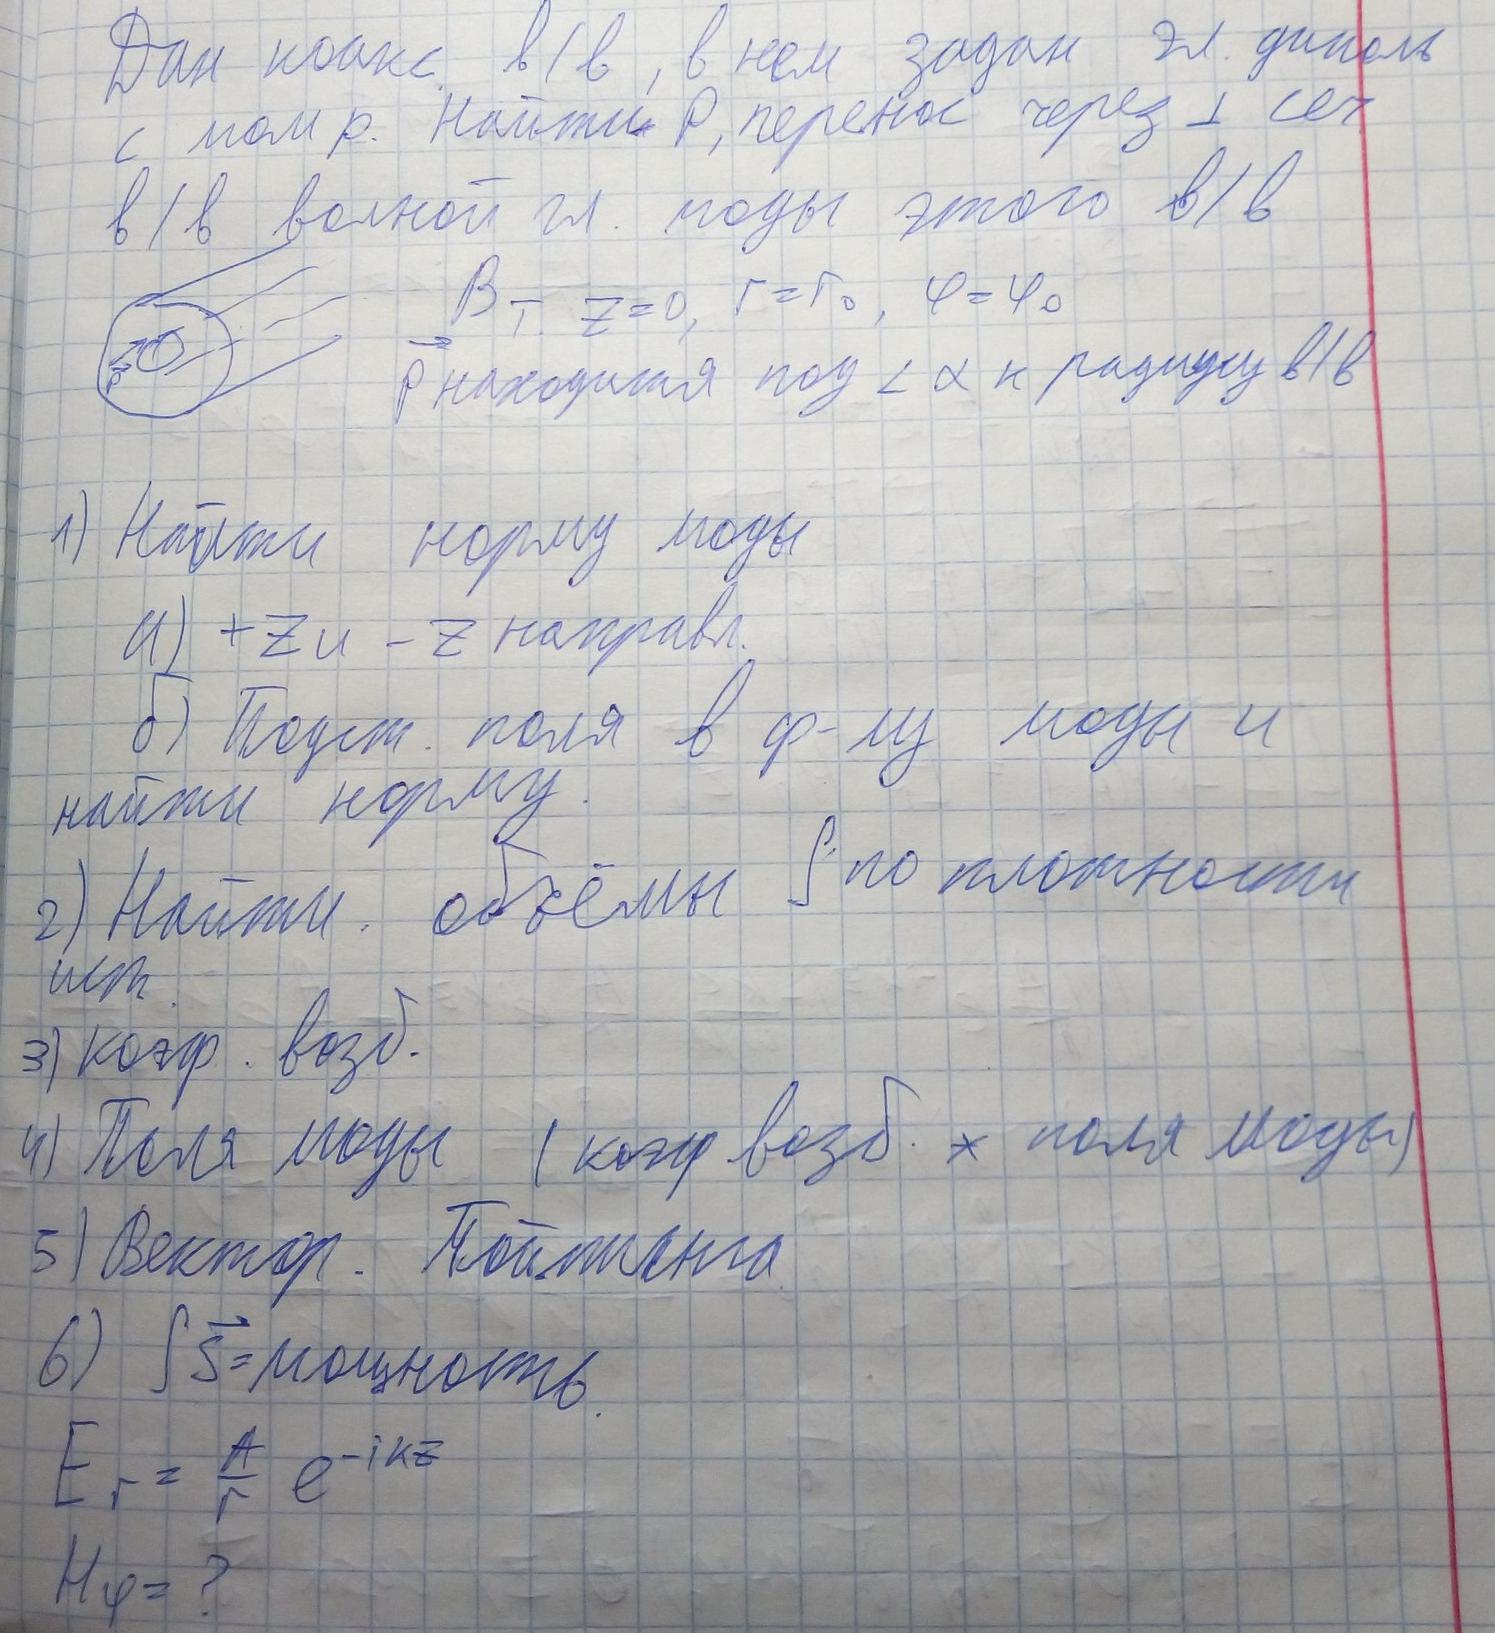 Дан коакс. в/в, в нем задан эл. диполь
с мом p. Найти P, перенос через ⊥ сеч
в/в волной гл. моды этого в/в
В т. z=0, r=r₀, φ=φ₀
p⃗ находится под ∠ α к радиусу в/в
p⃗
1) Найти норму моды
а) +z и -z направл.
б) Подст. поля в ф-лу моды и
найти норму.
2) Найти объёмы ∫ по плотности
ист.
3) коэф. возб.
4) Поля моды (коэф возб. × поля моды)
5) Вектор. Пойтинга
6) ∫S⃗=мощность.
E_r = A/r e^{-ikz}
H_φ = ?